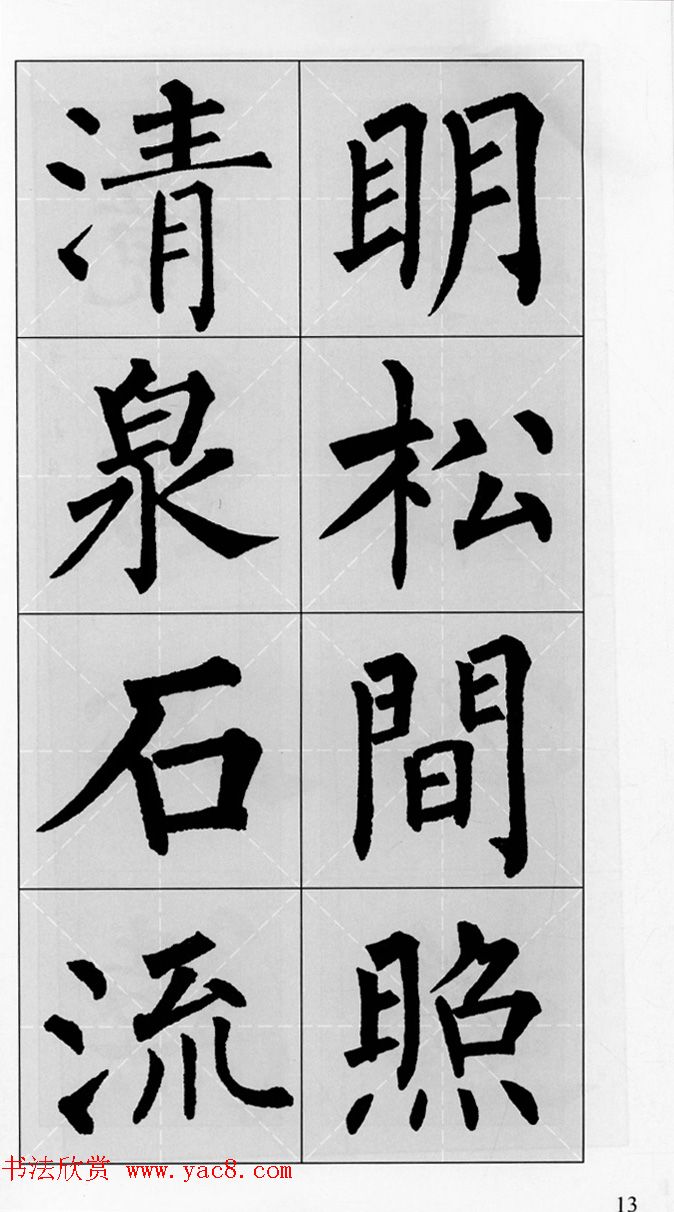 明松間照
清泉石流
书法欣赏 www.yac8.com
13